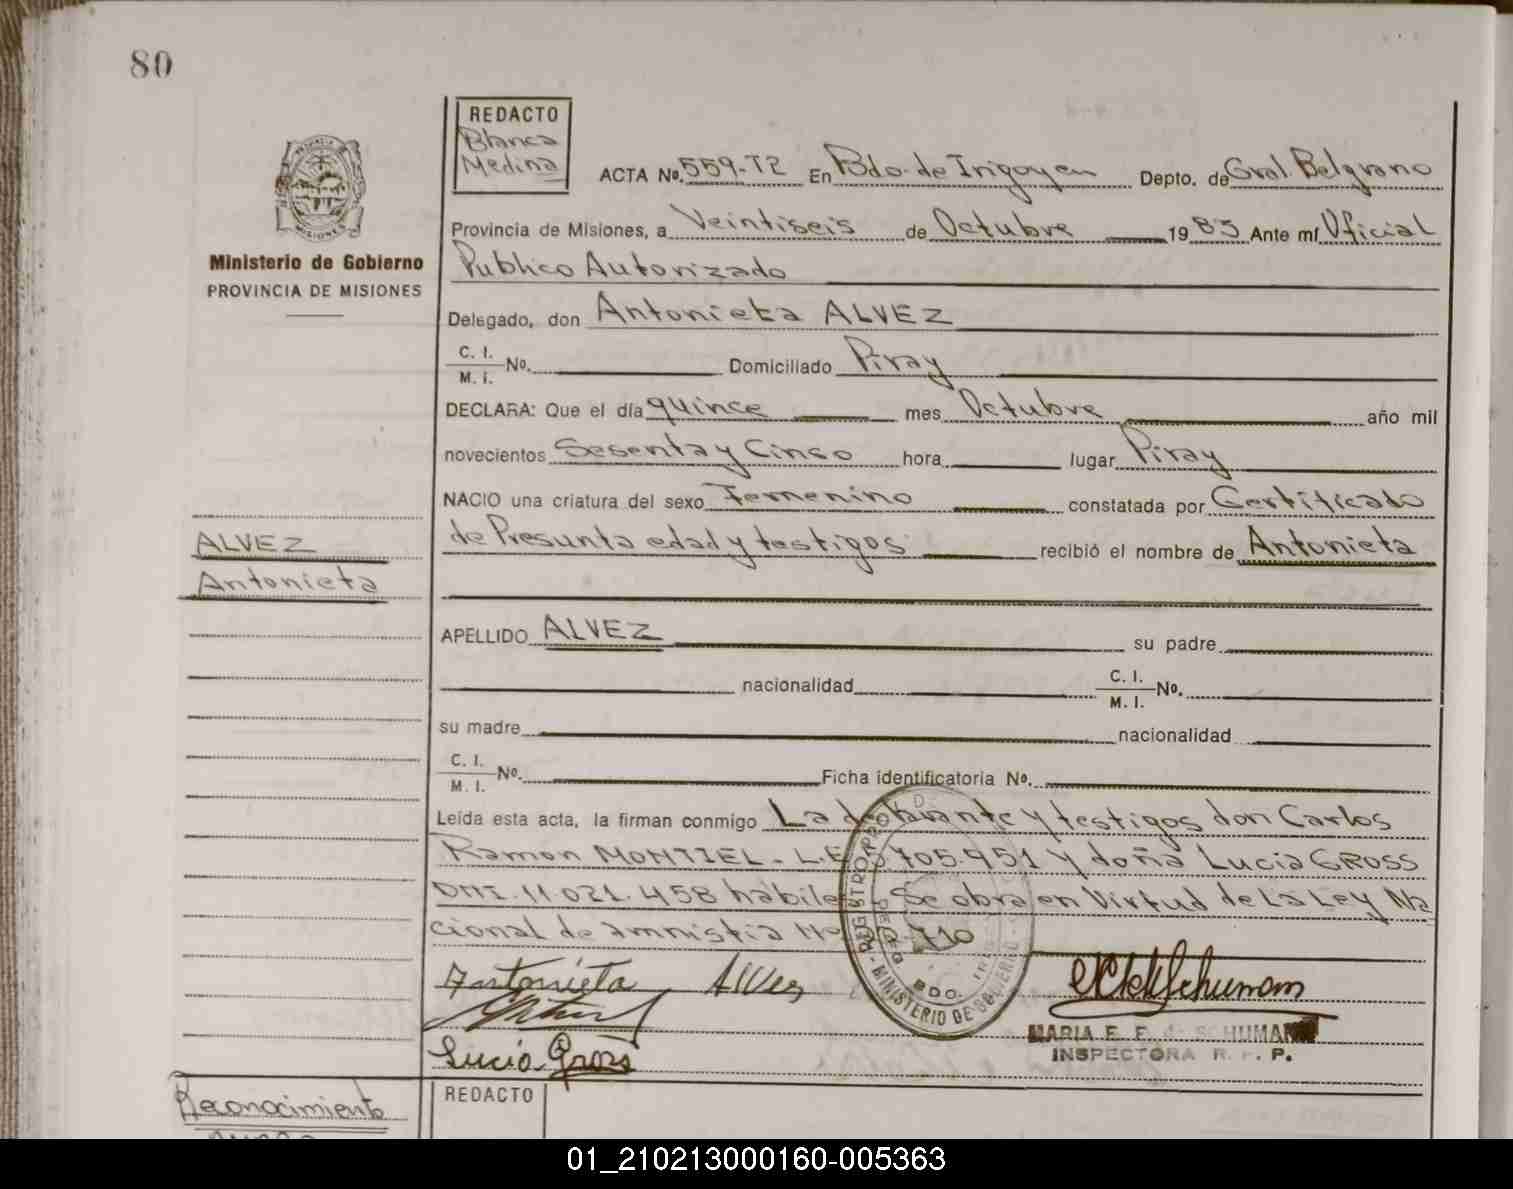 80
REDACTO
Blanca
Medina
ACTA Nº. 559-T2 En Bdo. de Irigoyen Depto. de Gral Belgrano
Provincia de Misiones, a Veintiseis de Octubre 19 83 Ante mí Oficial
Publico Autorizado
Ministerio de Gobierno
PROVINCIA DE MISIONES
Delegado, don Antonieta ALVEZ
C. I. / M. I. Nº. Domiciliado Piray
DECLARA: Que el día quince mes Octubre año mil
novecientos Sesenta y Cinco hora lugar Piray
NACIO una criatura del sexo Femenino constatada por Certificado
de Presunta edad y testigos recibió el nombre de Antonieta
ALVEZ
Antonieta
APELLIDO ALVEZ su padre
nacionalidad C. I. / M. I. Nº.
su madre nacionalidad
C. I. / M. I. Nº. Ficha identificatoria Nº.
Leída esta acta, la firman conmigo La declarante y testigos don Carlos
Ramon MONTIEL - L.E. 705.951 y doña Lucia GROSS
DNI. 11.021.458 habiles Se obra en Virtud de La Ley Na
cional de amnistia Nº 710
Antonieta Alves
Lucia Gross
MARIA E. F. de SCHUMANN
INSPECTORA R. P. P.
MINISTERIO DE GOBIERNO
BDO.
Reconocimiento
REDACTO
01_210213000160-005363